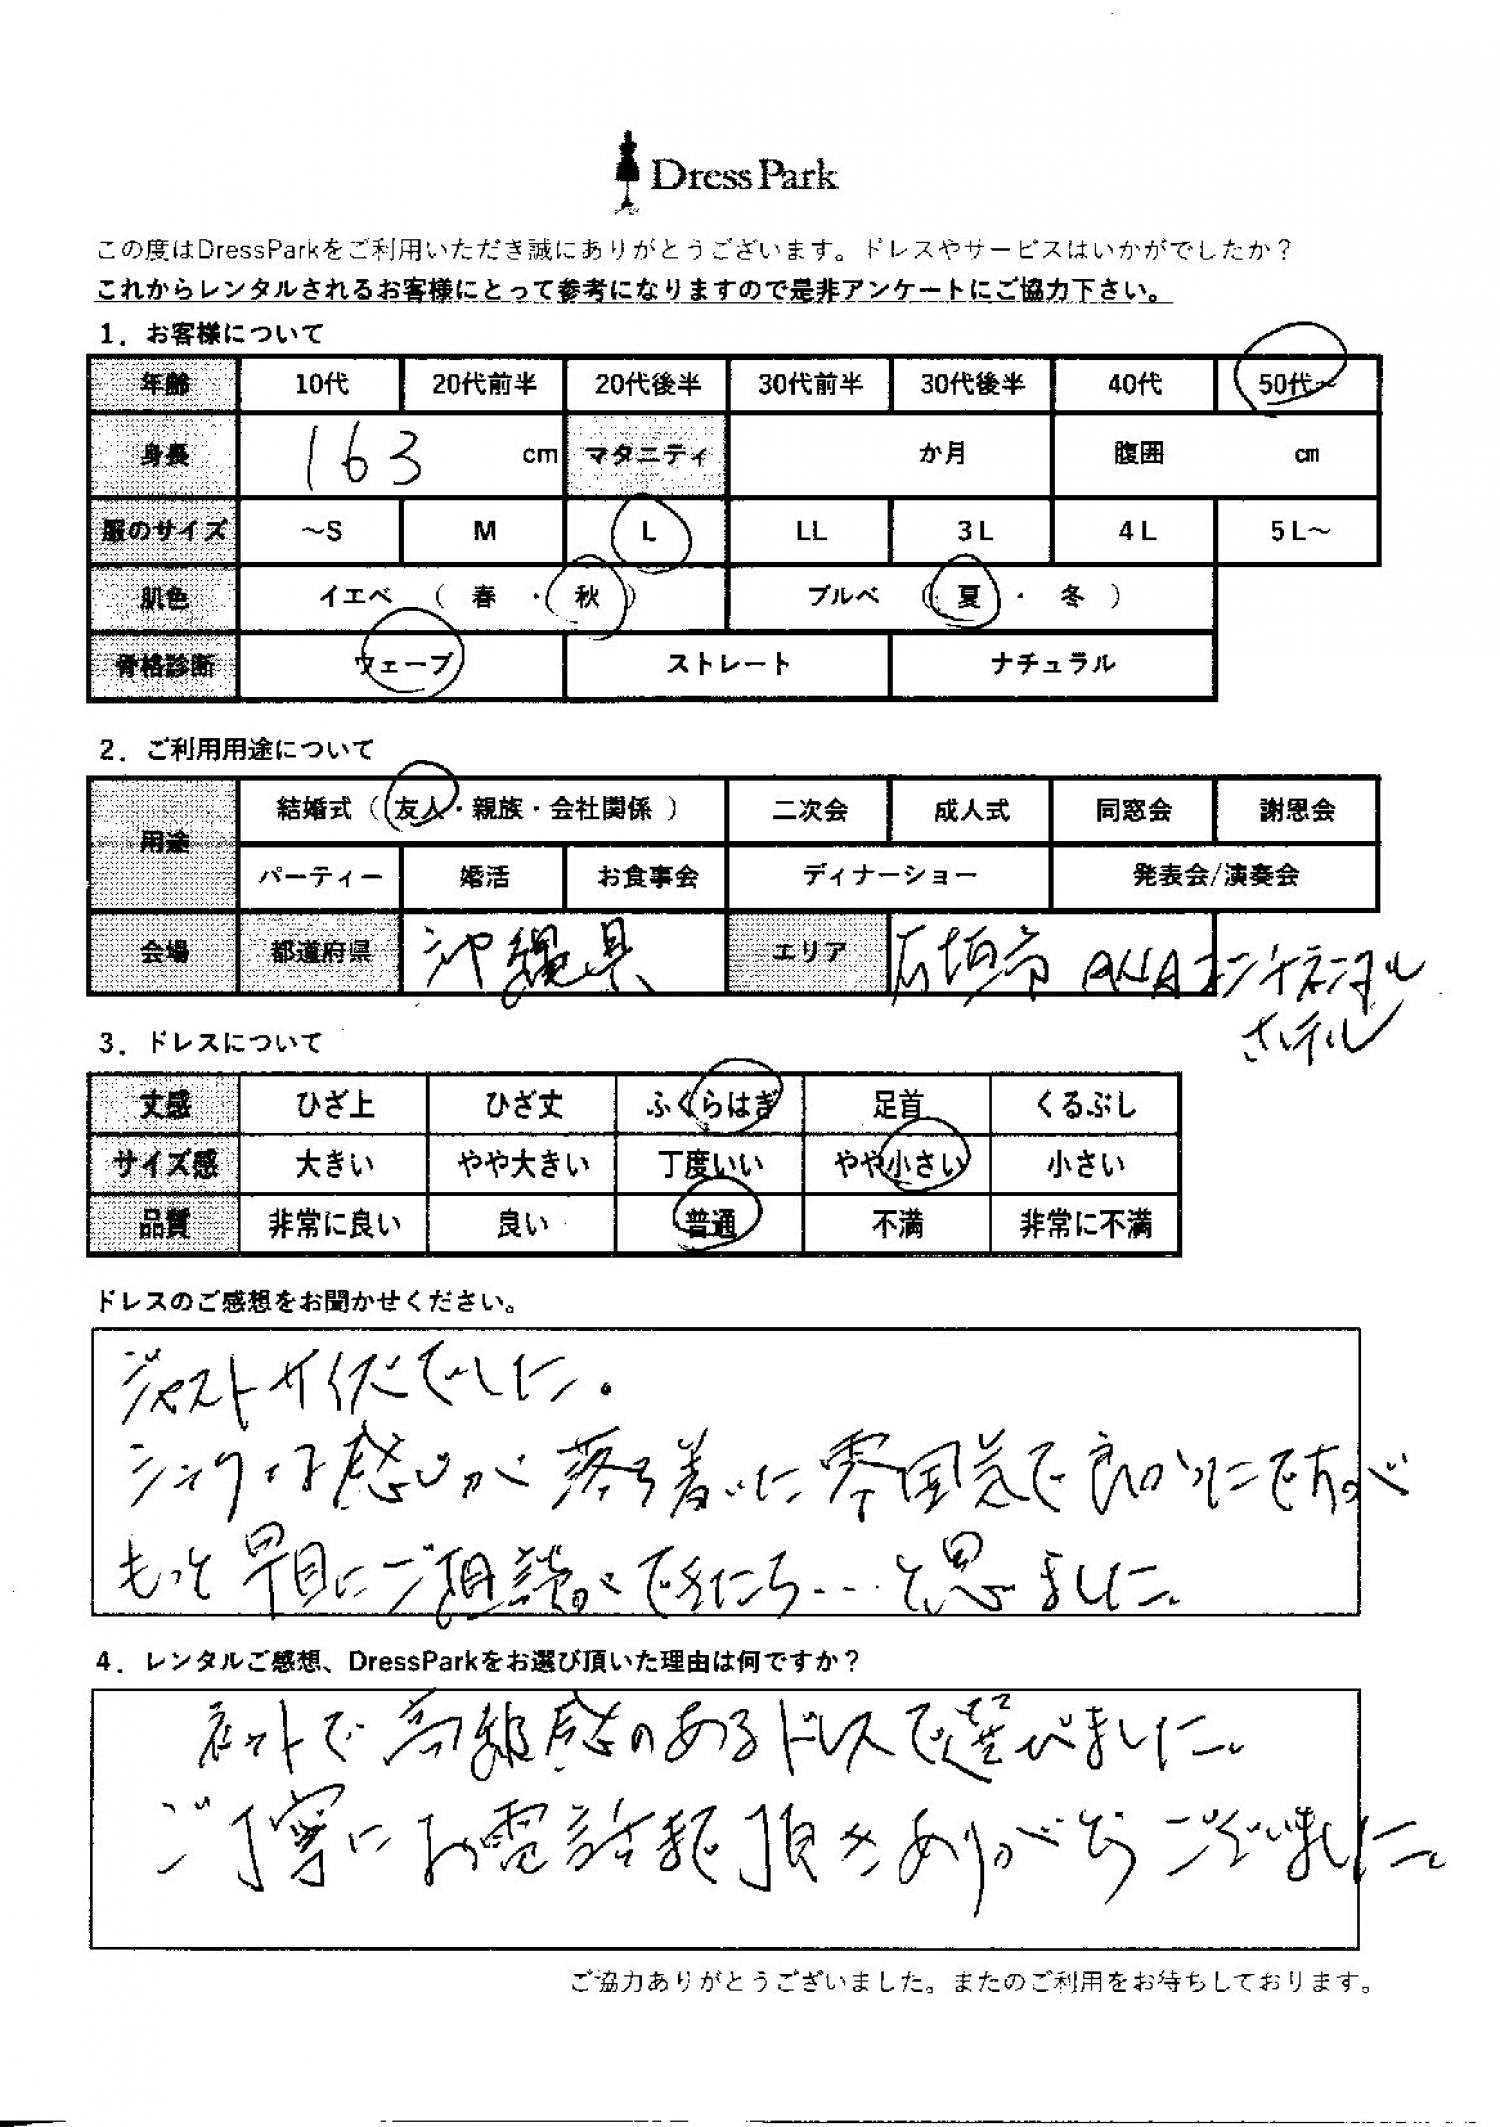 Dress Park
この度はDressParkをご利用いただき誠にありがとうございます。ドレスやサービスはいかがでしたか？
これからレンタルされるお客様にとって参考になりますので是非アンケートにご協力下さい。
1．お客様について
年齢 10代 20代前半 20代後半 30代前半 30代後半 40代 50代～
身長 163 cm マタニティ か月 腹囲 cm
服のサイズ ～S M L LL 3L 4L 5L～
肌色 イエベ（ 春 ・ 秋 ） ブルべ（ 夏 ・ 冬 ）
骨格診断 ウェーブ ストレート ナチュラル
2．ご利用用途について
用途 結婚式（ 友人・親族・会社関係 ） 二次会 成人式 同窓会 謝恩会
パーティー 婚活 お食事会 ディナーショー 発表会/演奏会
会場 都道府県 沖縄県 エリア 石垣市 ANA
ホテル
3．ドレスについて
丈感 ひざ上 ひざ丈 ふくらはぎ 足首 くるぶし
サイズ感 大きい やや大きい 丁度いい やや小さい 小さい
品質 非常に良い 良い 普通 不満 非常に不満
ドレスのご感想をお聞かせください。
ジャストサイズでした。
シックな感じが落ち着いた雰囲気で良かったですが
もっと早目にご相談ができたら…と思いました。
4．レンタルご感想、DressParkをお選び頂いた理由は何ですか？
ネットで高級感のあるドレスで選びました。
ご丁寧にお電話まで頂きありがとうございました。
ご協力ありがとうございました。またのご利用をお待ちしております。